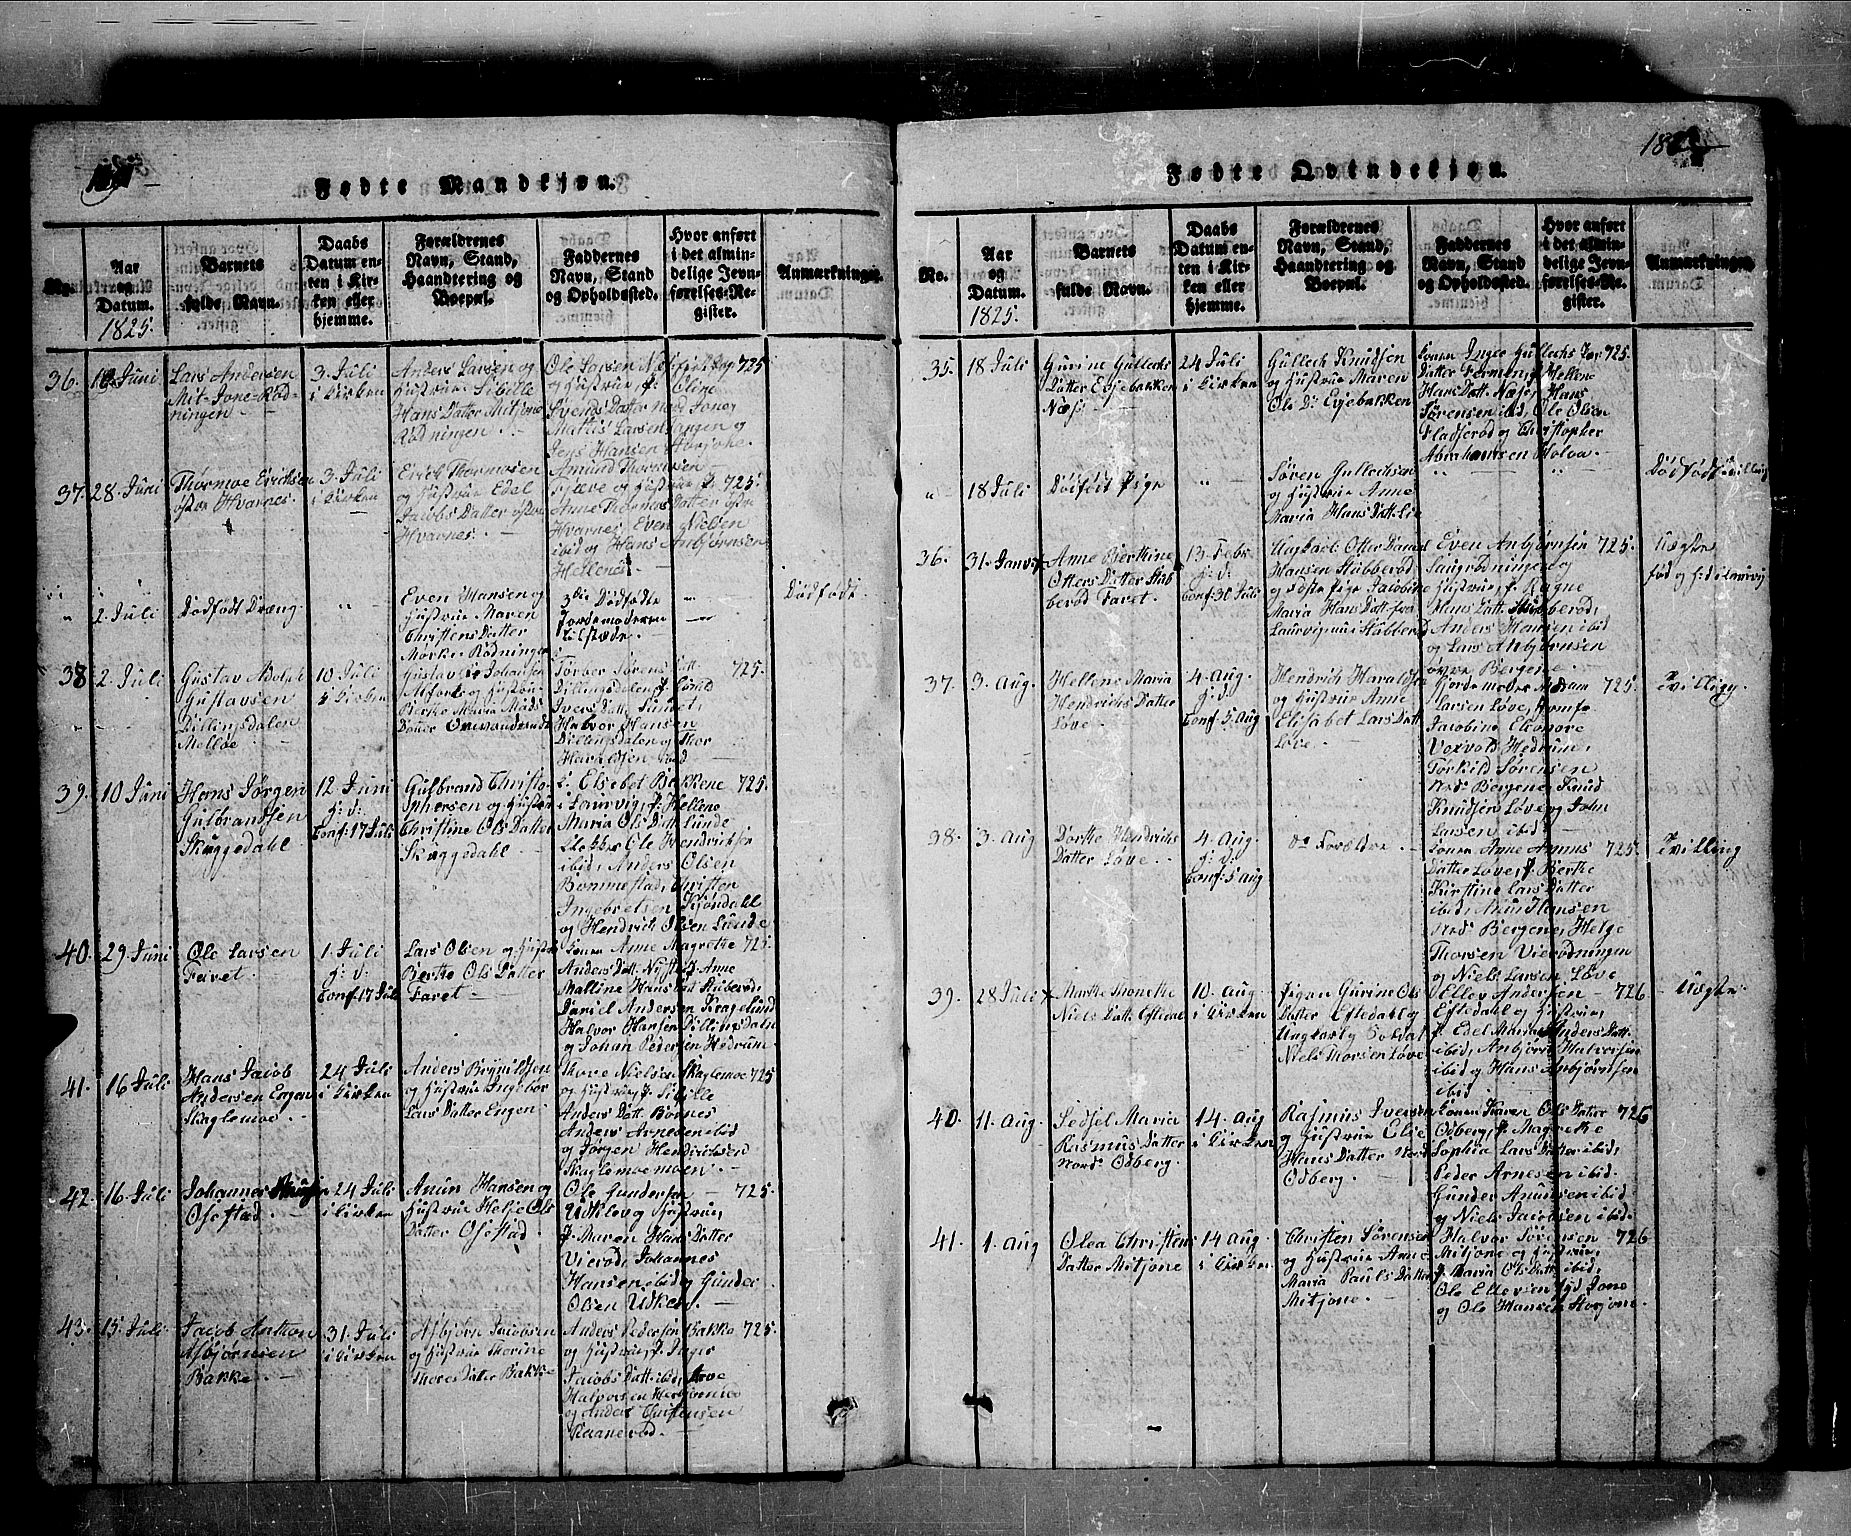 Fødte Mandkjøn.
No.
Aar og Datum. 1825.
Barnets fulde Navn.
Daabs Datum enten i Kirken eller hjemme.
Forældrenes Navn, Stand, Haandtering og Boepæl.
Faddernes Navn, Stand og Opholdssted.
Hvor anført i det almindelige Jevnførelses-Register.
Anmærkninger.
36. 18 Juni
Lars Andersen
Mit-Jone-Rød-
ningen
3 Juli
i Kirken
Anders Larsen og
Hustrue Sibille
Hans Datter Mitjone
Rødningen.
Ole Larsen
og Hustrue, P. Oline
Svends Datter nord Jone,
Mathis Larsen Langen og
Jens Hansen
725
37. 28 Juni
Thormoe Erichsen
østre Hvarnes
3 Juli
i Kirken
Erich Thormosen
og Hustrue Edel
Jacobs Datter østre
Hvarnes.
Amund Thormosen
og Hustrue P.
Anne Thormos Datter østre
Hvarnes, Even Nielsen
ibid og Hans Anbjørnsen
Hellenes.
725.
" 2 Juli
Dødfødt Dræng
"
Even Hansen og
Hustrue Maren
Christens Datter
Mørke-Rødningen
3die Dødfødte
Jordemoderen
tilstæde.
Dødfødt.
38 2 Juli
Gustav Adolph
Gustavsen
Dillingsdalen
Melløe
10 Juli
i Kirken
Gustav Johansen
Alfort og Hustrue
Berthe Maria Mads
Datter Omvandrende
Torber Sørens Datt.
Dillingsdalen, P.
Ivers Datt.
Halvor Hansen
Dillingsdalen og Thor
Haraldsen
725.
39. 10 Juni
Hans Jørgen
Gulbrandsen
Skuggedahl.
12 Juni
h: d:
Conf: 17 Juli
Gulbrand Christo-
phersen og Hustrue
Christine Ols Datter
Skuggedahl
L. Elsebet Bakkene
i Laurvig, P. Hellene
Maria Ols Datt. Lunde
Ole Hendrichsen
ibid, Anders Olsen
Bommestad, Christen
Ingebretsen Kjøndahl
og Hendrich Olsen Lunde
725.
40. 29 Juni
Ole Larsen
Faret.
1 Juli
h: d:
Conf. 17 Juli
Lars Olsen og Hustrue
Berthe Ols Datter
Faret
Konen Anne Magrethe
Anders Datt. P. Anne
Malline Hans Datt. Stuberød,
Daniel Andersen Kragelund
Halvor Hansen Dillingsdalen
og Johan Pedersen Hedrum.
725.
41. 16 Juli
Hans Jacob
Andersen Engen
Skaglemoe
24 Juli
i Kirken
Anders Brynildsen
og Hustrue Ingebor
Lars Datter Engen.
Thore Nielsen Skaglemoe
og Hustrue, P. Sibille
Anders Datt. Bornes
Anders Arnesen ibid
og Jørgen Hendrichsen
Skaglemoemoen.
725
42. 16 Juli
Johannes
Ofestad.
24 Juli
i Kirken
Amun Hansen og
Hustrue Helje Ols
Datter Ofestad.
Ole Gundersen
Udklev og Hustrue,
P. Maren Hans Datter
Vierød, Johannes
Hansen ibid og Gunder
Olsen Udklev.
725.
43. 15 Juli
Jacob Anthon
Asbjørnsen
Bakke.
31 Juli
i Kirken
Asbjørn Jacobsen
og Hustrue Thorine
Thores Datter Bakke
Anders Pedersen Bakke
og Hustrue, P. Inger
Jacobs Datt. ibid, Arve
Halvorsen
og Anders Christensen
Raanerød.
725.
Fødte Qvindekjøn.
No.
Aar og Datum. 1825.
Barnets fulde Navn.
Daabs Datum enten i Kirken eller hjemme.
Forældrenes Navn, Stand, Haandtering og Boepæl.
Faddernes Navn, Stand og Opholdsted.
Hvor anført i det almindelige Jevnførelses-Register.
Anmærkninger.
35. 18 Juli
Gurine Gullichs
Datter Eyebakken
Næs.
24 Juli
i Kirken
Gullech Knudsen
og Hustrue Maren
Ols Dr Eyebakken
Konen Inger Gullechs
Datter P. Hellene
Hans Datt. Næs, Hans
Sørensen ibid, Ole Olsen
Fladserød og Christopher
Abrahamsen Holva.
725.
" 18 Juli
Dødfødt Pige
"
Søren Gullechsen
og Hustrue Anne
Maria Hans Datt. Lie
Dødfødt Tvilling
36. 31 Januar
Anne Berthine
Otters Datter Stub-
berød Faret.
13 Febr.
h: d:
Conf: 31 Juli
Ungkarl Otter Daniel
Hansen Stubberød
og Pige Jacobine
Maria Hans Datt. fra
Laurvig nu i Stubberød
Even Anbjørnsen
Saugrødningen og
Hustrue, P. Ragne
Hans Datt. Stubberød,
Anders Hansen ibid
og Lars Anbjørnsen
øvre Bergene.
725.
Uægte
37. 3. Aug.
Hellene Maria
Hendrichs Datter
Løve
4. Aug.
h: d:
Conf: 5 Aug
Hendrich Haraldsen
og Hustrue Anne
Elisabet Lars Datt.
Løve.
Gjordemoder Madam
Larsen Løve, Jomfr.
Jacobine Eleonore
Voxvold Hedrum,
Torkild Sørensen
Nord Bergene, Knud
Knudsen Løve og John
Larsen ibid
725.
Tvilling.
38. 3. Aug
Dorthe Hendrichs
Datter Løve.
4. Aug.
h: d:
Conf: 5 Aug
do Forældre.
Konen Anne Amuns
Datter Løve, P. Berthe
Kirstine Lars Datter
ibid, Amun Hansen
Nord Bergene, Helge
Thorsen Vierødningen
og Niels Larsen Løve
725.
Tvilling
39. 28 Juli
Marthe Thonethe
Niels Datt. Efledal
10. Aug
i Kirken
Pigen Gurine Ols
Datter Efledahl og
Ungkarl og Soldat
Niels Thorsen Løve
Ellev Andersen
Efledahl og Hustrue,
P. Edel Maria Anders Datt.
ibid, Anbjørn Halvorsen
ibid og Hans Anbjørnsen
ibid
726
Uægte.
40. 11. Aug.
Sedsel Maria
Rasmus Datter
Nord Odberg.
14. Aug
i Kirken
Rasmus Iversen
og Hustrue Elie
Hans Datter Nord
Odberg.
Konen Karen Ols Datter
Odberg, P. Magrethe
Sophia Lars Datter ibid,
Peder Arnesen ibid
Gunder Amunsen ibid
og Niels Jacobsen ibid.
726
41. 1. Aug
Olea Christens
Datter Mitjone
14 Aug
i Kirken
Christen Sørensen
og Hustrue Anne
Maria Pauls Datter
Mitjone.
Halvor Sørensen
Mitjone og Hustrue,
P. Maria Ols Datt. ibid,
Ole Ellevsen Syd Jone
og Ole Hansen Storjone.
726